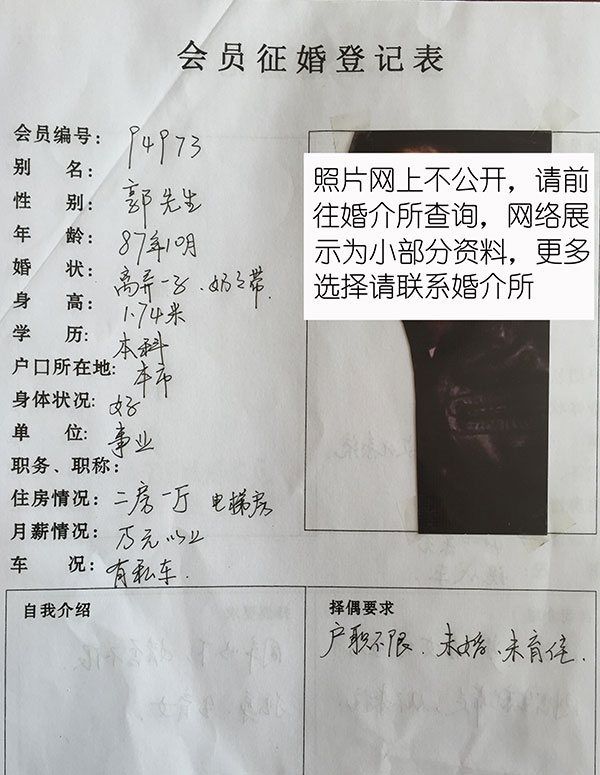 会员征婚登记表
会员编号: 94973
别 名:
性 别: 郭先生
年 龄: 87年10月
婚 状: 离弃一子、奶奶带
身 高: 1.74米
学 历: 本科
户口所在地: 本市
身体状况: 好
单 位: 事业
职务、职称:
住房情况: 二房一厅 电梯房
月薪情况: 万元以上
车 况: 有私车.
照片网上不公开，请前
往婚介所查询，网络展
示为小部分资料，更多
选择请联系婚介所
自我介绍
择偶要求
户职不限、未婚、未育佳.